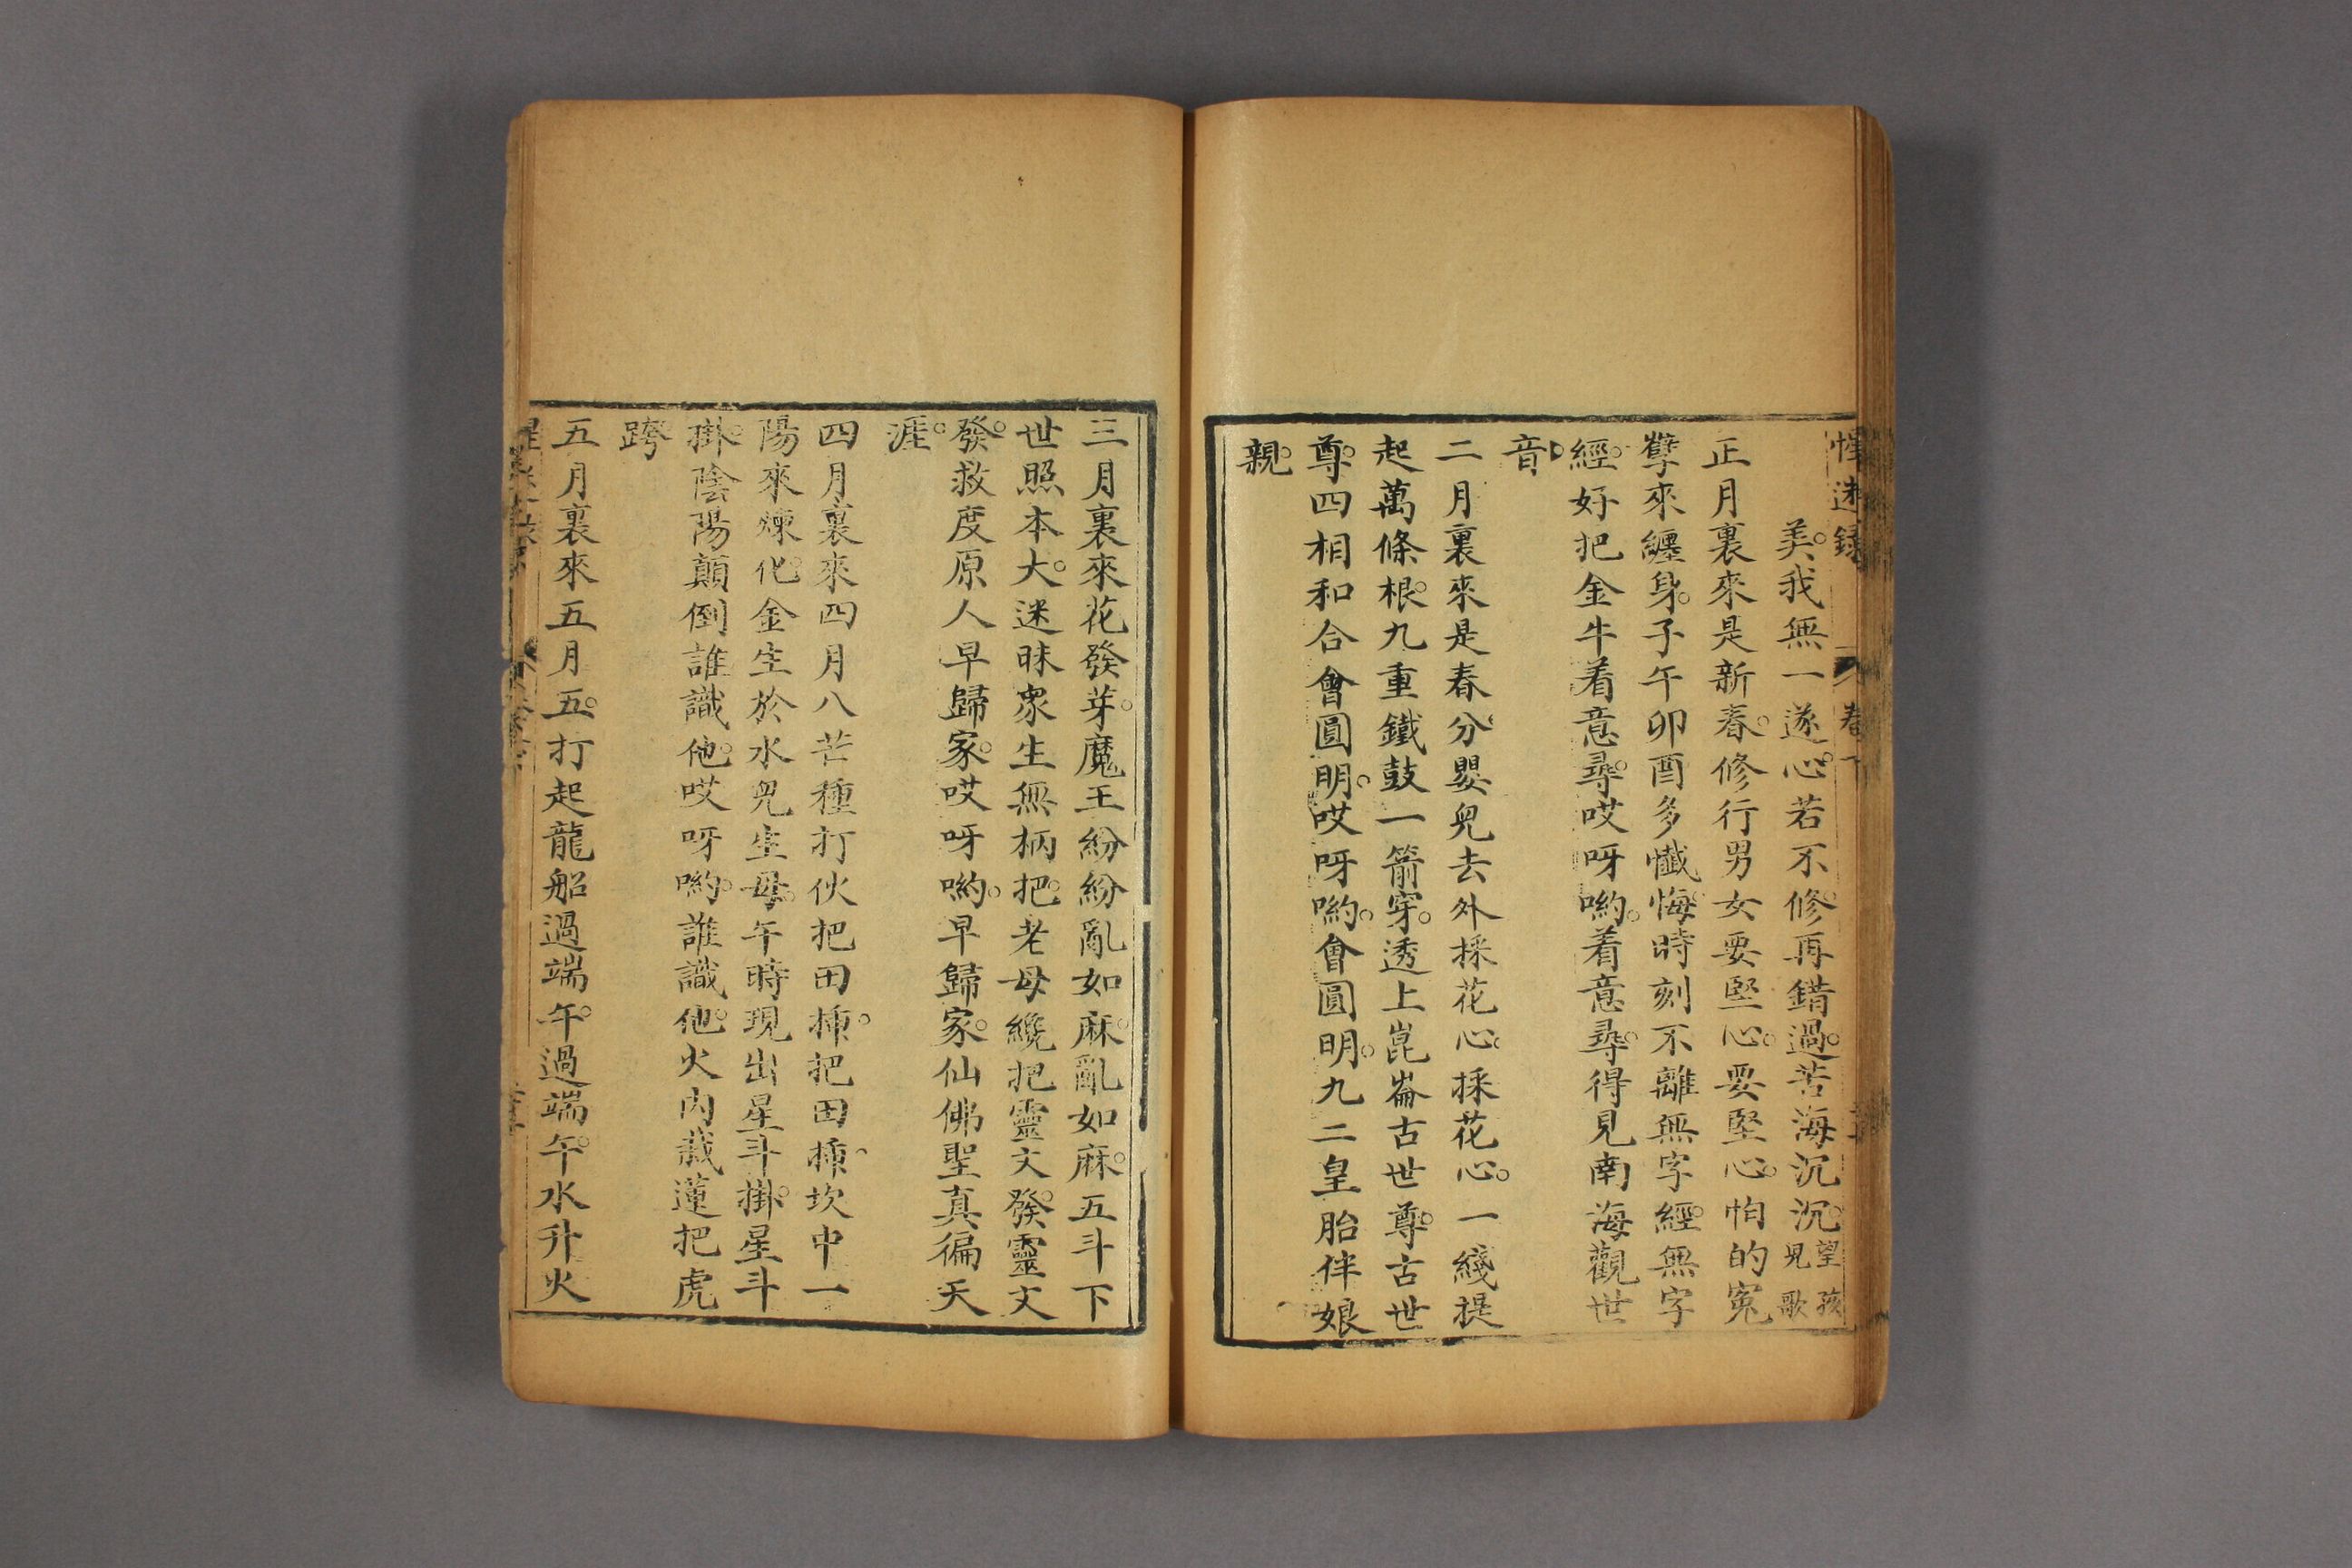 惺迷錄 卷下
美。我無一遂心。若不修。再錯過。苦海沉沉。望孩兒歌
正月裏來是新春。修行男女要堅心。要堅心。怕的寃
孽來纏身。子午卯酉多懺悔。時刻不離無字經。無字
經。好把金牛着意尋。哎呀喲。着意尋。得見南海觀世
音。
二月裏來是春分。嬰兒去外採花心。採花心。一綫提
起萬條根。九重鐵鼓一箭穿。透上崑崙古世尊。古世
尊。四相和合會圓明。哎呀喲。會圓明。九二皇胎伴娘
親。
三月裏來花發芽。魔王紛紛亂如麻。亂如麻。五斗下
世照本大。迷昧衆生無柄把。老母纔把靈文發。靈文
發。救度原人早歸家。哎呀喲。早歸家。仙佛聖真徧天
涯。
四月裏來四月八芒種打伙把田揷。把田揷。坎中一
陽來煉化。金生於水兒生母。午時現出星斗掛。星斗
掛。陰陽顛倒誰識他。哎呀喲。誰識他。火內栽蓮把虎
跨
五月裏來五月五。打起龍船過端午。過端午。水升火